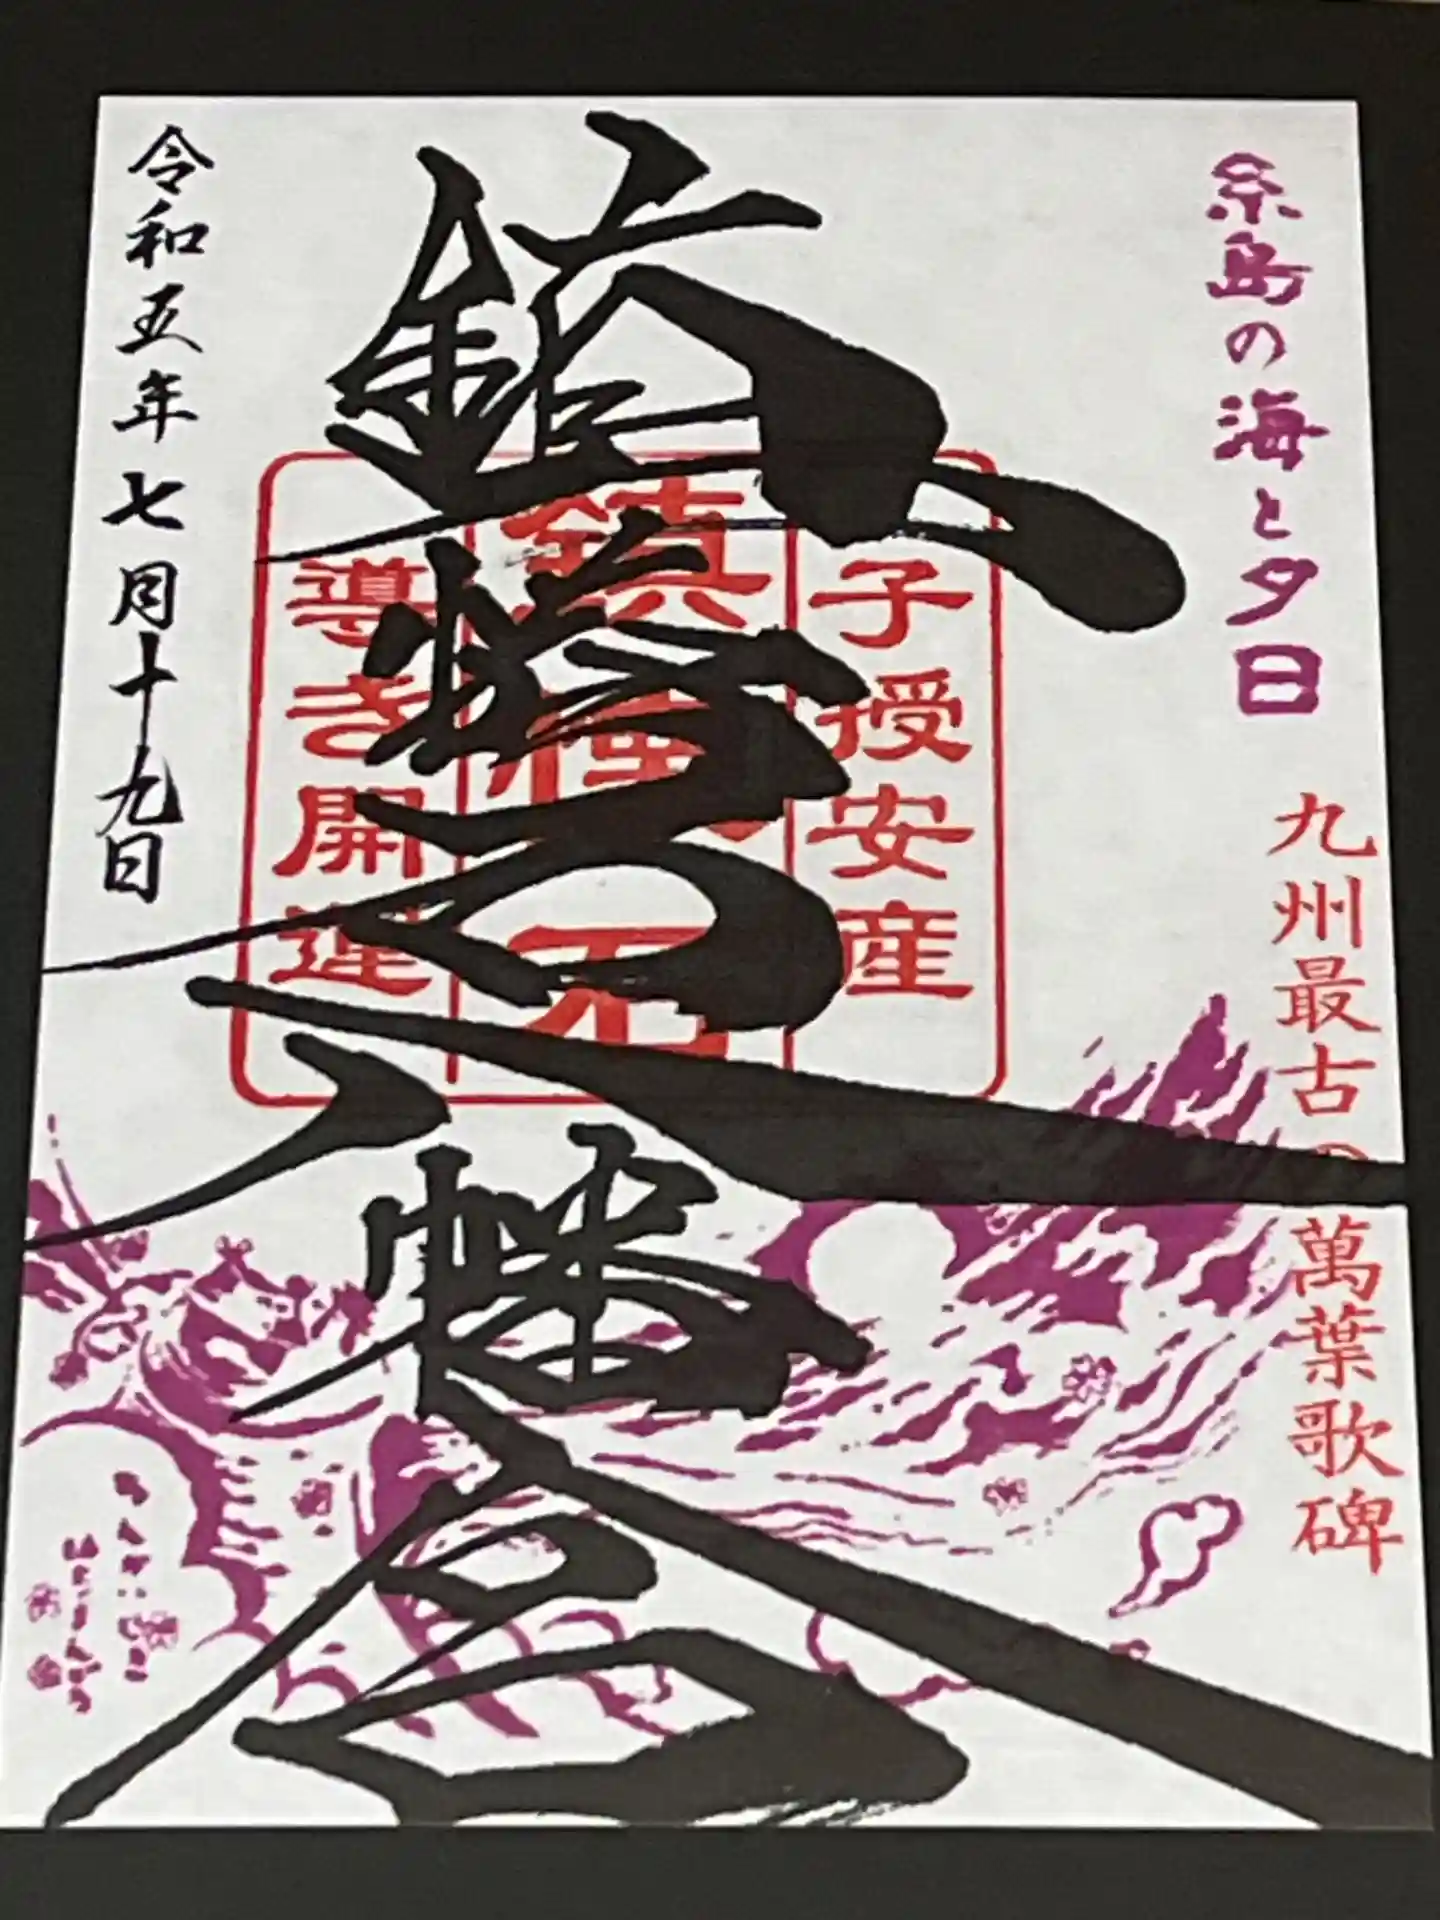 糸島の海と夕日
九州最古の萬葉歌碑
子授安産
鎮懐石
導き開運
鎮懐石八幡宮
令和五年七月十九日